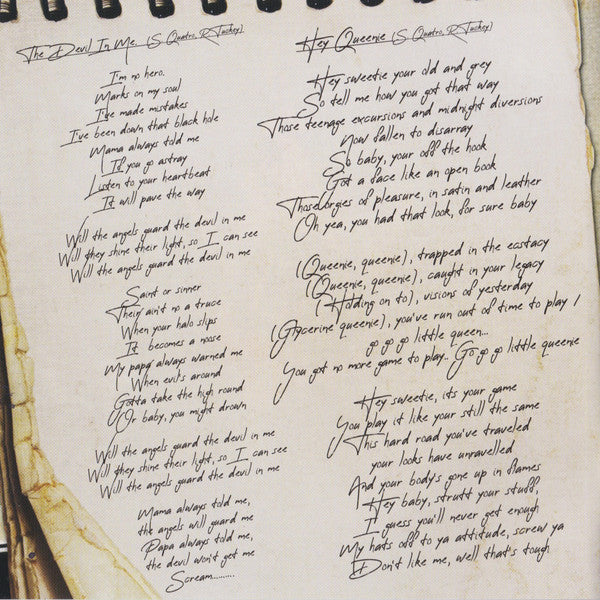 The Devil In Me. (S Quatro, R Tuckey)
I'm no hero.
Marks on my soul
I've made mistakes
I've been down that black hole
Mama always told me
If you go astray
Listen to your heartbeat
It will pave the way
Will the angels guard the devil in me
Will they shine their light, so I can see
Will the angels guard the devil in me
Saint or sinner
Their ain't no a truce
When your halo slips
It becomes a noose
My papa always warned me
When evil's around
Gotta take the high round
Or baby, you might drown
Will the angels guard the devil in me
Will they shine their light, so I can see
Will the angels guard the devil in me
Mama always told me,
the angels will guard me
Papa always told me,
the devil won't get me
Scream.........
Hey Queenie (S Quatro, R Tuckey)
Hey sweetie your old and grey
So tell me how you got that way
Those teenage excursions and midnight diversions
Now fallen to disarray
So baby, your off the hook
Got a face like an open book
Those orges of pleasure, in satin and leather
Oh yea, you had that look, for sure baby
(Queenie, queenie), trapped in the ecstacy
(Queenie, queenie), caught in your legacy
(Holding on to), visions of yesterday
(Glycerine queenie), you've run out of time to play /
go go go little queen...
You got no more game to play.. Go go go little queenie
Hey sweetie, its your game
You play it like your still the same
This hard road you've traveled
your looks have unravelled
And your body's gone up in flames
Hey baby, strutt your stuff,
I guess you'll never get enough
My hats off to ya attitude, screw ya
Don't like me, well that's tough